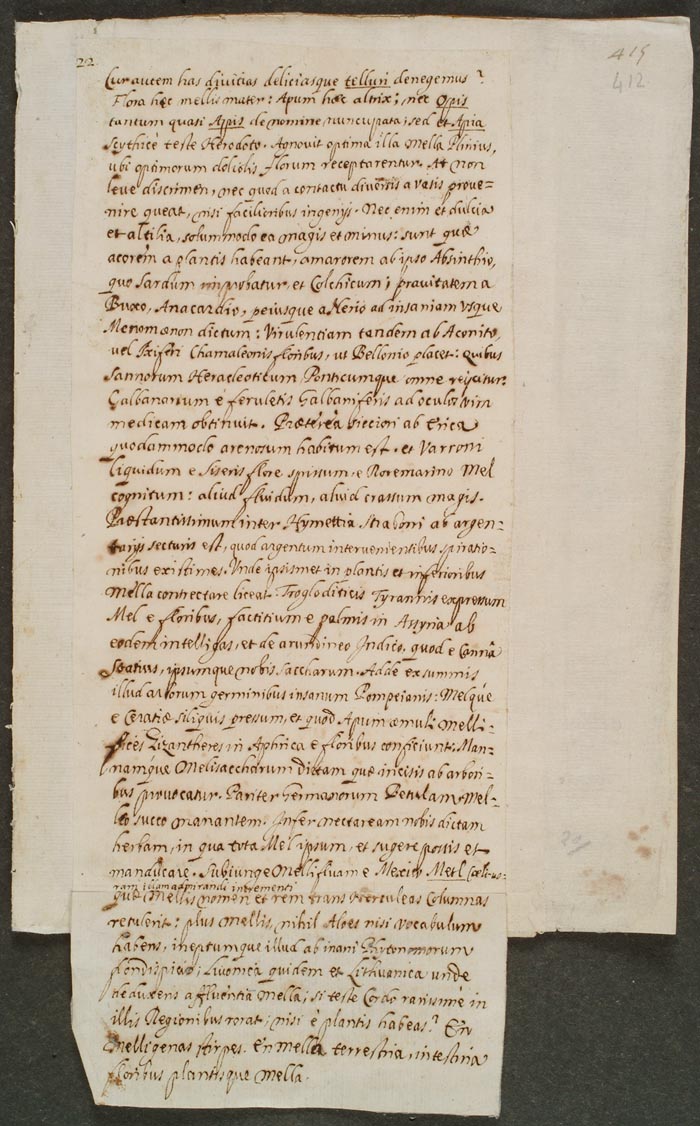 22
415
412
Cur autem has divitias deliciasque telluri denegemus?
Flora hęc mellis mater: Apum hæc altrix; nec Opis
tantum quasi Appis de nomine nuncupata; sed et Apia
Scythicè teste Herodoto. Agnovit optima illa Mella Plinius,
ubi optimorum doliolis florum receptarentur. At non
leve discrimen, nec quod a contactu diversis a vasis prove=
nire queat, nisi facilioribus ingenijs. Nec enim et dulcia
et altilia, solummodo ea magis et minus: sunt quæ
acorem a plantis habeant, amarorem ab ipso Absinthio,
quo Sardum improbatur, et Colchicum; pravitatem a
Buxo, Anacardio, peiusque a Nerio ad insaniam usque
Menomænon dictum: Virulentiam tandem ab Aconito,
vel Ixiferi Chamæleonis floribus, ut Bellonio placet: quibus
Sannorum Heracleoticum Ponticumque omne reijcitur:
Galbanorum è feruletis Galbaniferis ad oculos vim
medicam obtinuit. Præterea ab Erica
quodammodo arenosum habitum est. et Varroni
liquidum e Siseris flore spissum, e Roremarino Mel
cognitum: aliud fluidum, aliud crassum magis.
Præstantissimum inter Hymettia Straboni ab argen=
tarijs secturis est, quod argentum intervenientibus spiratio=
nibus existimes. Unde ipsismet in plantis et inferioribus
Mella contrectare liceat. Trogloditicis Tyrannis expressum
Mel e floribus, factitium e palmis in Assyria ab
eodem intelligas, et de arundineo Indico, quod e Canna
Statius, ipsumque nobis Saccharum. Adde ex summis
illud arborum germinibus insanum Pompeianis: Melque
e Ceratiæ siliquis pressum, et quod Apum æmuli Melli=
fices Zizantheres in Aphrica e floribus conficiunt. Man=
namque Melisaccharum dictam quæ incisis ab arbori=
bus provocatur. Pariter Germanorum Betulam Mel=
leo succo manantem. Infer nectaream nobis dictam
herbam, in qua tota Mel ipsum, et sugere possis et
manducare. Subiunge Mellifluam e Mexico Metl
ram illam admirandi incrementi
quæ Mellis nomen et rem trans Herculeas Columnas
retulerit: plus mellis, nihil Aloes nisi vocabulum
habens, ineptumque illud ab inani Phytonomorum
Livonica quidem et Lithuanica unde
affluentia Mella; si teste Cordo rarissimè in
illis Regionibus rorat; nisi è plantis habeas? En
Melligenas stirpes. En mella terrestria, intestina
floribus plantisque mella.